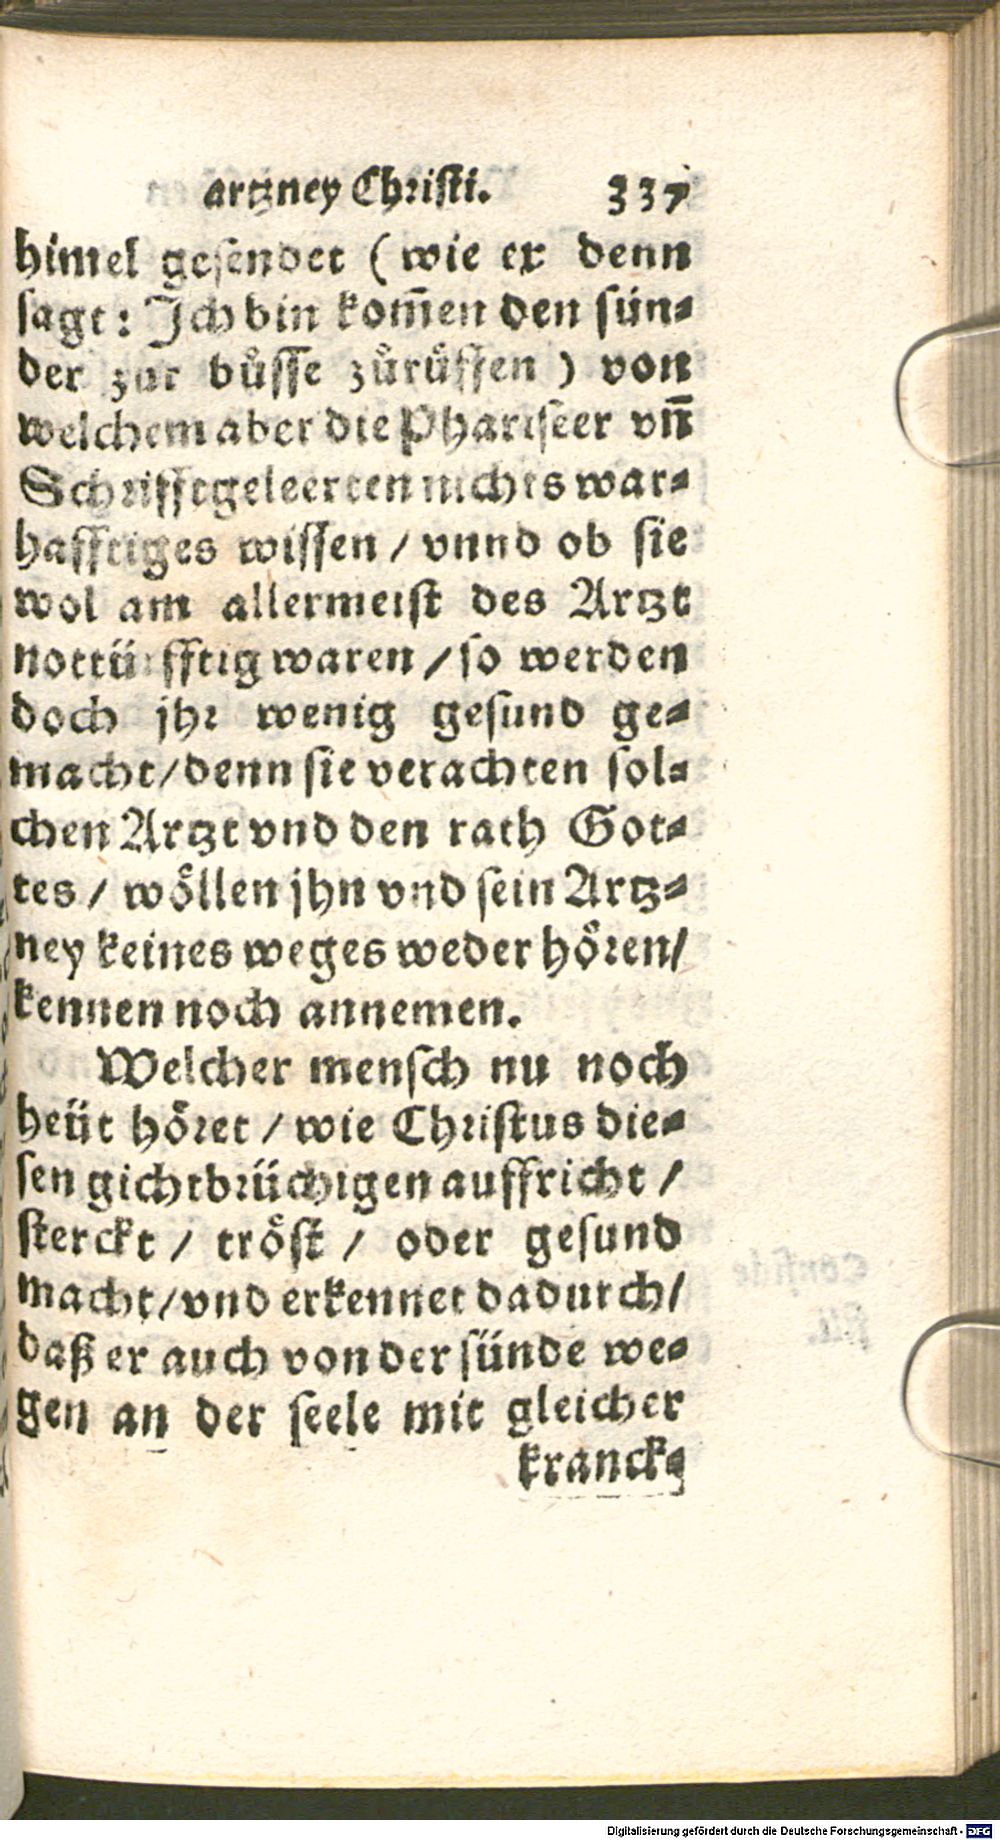 artzney Christi. 337
himel gesendet ( wie er denn
sagt: Jch bin kom̄en den sün-
der zur bůsse zůrůffen ) von
welchem aber die Phariseer vn̄
Schrifftgeleerten nichts war-
hafftiges wissen / vnnd ob sie
wol am allermeist des Artzt
nottürfftig waren / so werden
doch jhr wenig gesund ge-
macht / denn sie verachten sol-
chen Artzt vnd den rath Got-
tes / wöllen jhn vnd sein Artz-
ney keines weges weder hören /
kennen noch annemen.
Welcher mensch nu noch
heüt höret / wie Christus die-
sen gichtbrüchigen auffricht /
sterckt / tröst / oder gesund
macht / vnd erkennet dadurch /
daß er auch von der sünde we-
gen an der seele mit gleicher
kranck-
Digitalisierung gefördert durch die Deutsche Forschungsgemeinschaft - DFG